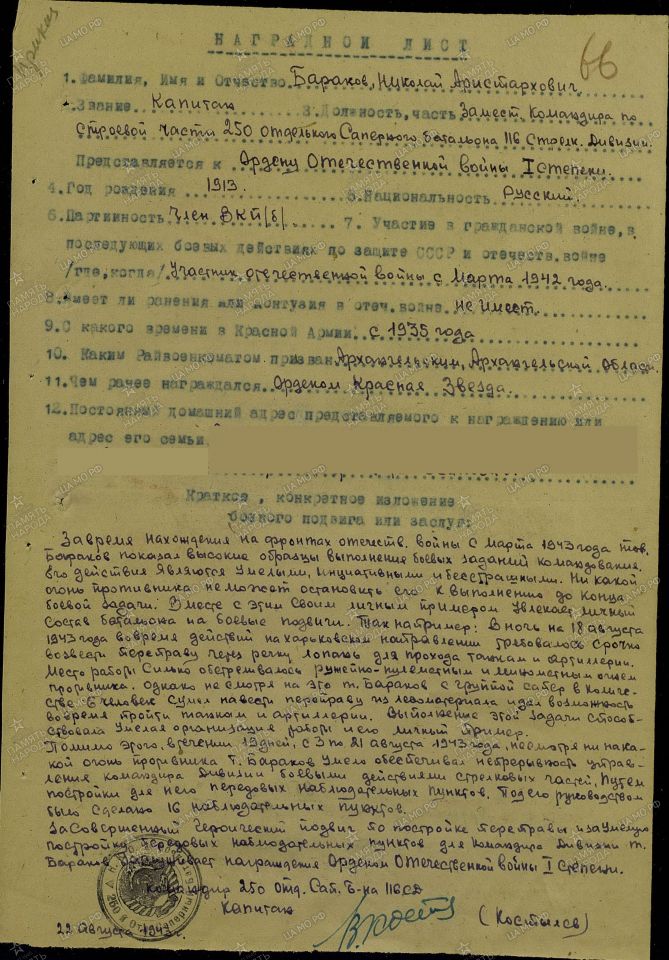 Приказ
66
НАГРАДНОЙ ЛИСТ
1. Фамилия, Имя и Отчество Бараков, Николай Аристархович
2. Звание Капитан 3. Должность, часть Замест. Командира по
строевой части 250 Отдельного Саперного батальона 116 Стрелк. Дивизии.
Представляется к Ордену Отечественной войны I степени.
4. Год рождения 1913. 5. Национальность Русский.
6. Партийность Член ВКП/б/ 7. Участие в гражданской войне, в
последующих боевых действиях по защите СССР и отечеств. войне
/где, когда/ Участник отечественной войны с Марта 1942 года.
8. Имеет ли ранения или контузия в отеч. войне не имеет.
9. С какого времени в Красной Армии с 1935 года
10. Каким Райвоенкоматом призван Архангельским, Архангельской области.
11. Чем ранее награждался Орденом Красная Звезда.
12. Постоянный домашний адрес представляемого к награждению или
адрес его семьи
Краткое, конкретное изложение
боевого подвига или заслуг:
За время нахождения на фронтах отечеств. войны с марта 1943 года тов.
Бараков показал высокие образцы выполнения боевых заданий командования.
Его действия являются умелыми, инициативными и бесстрашными. Ни какой
огонь противника не может остановить его к выполнению до конца
боевой задачи. Вместе с этим своим личным примером увлекает личный
состав батальона на боевые подвиги. Так например: в ночь на 18 августа
1943 года во время действий на харьковском направлении требовалось срочно
возвести переправу через речку лопань для прохода танкам и артиллерии.
Место работы сильно обстреливалось ружейно-пулеметным и минометным огнем
противника. Однако не смотря на это т. Бараков с группой сапер в количе-
стве 6 человек сумел навести переправу из лесоматериала и дал возможность
во время пройти танкам и артиллерии. Выполнение этой задачи способ-
ствовала умелая организация работы и его личный пример.
Помимо этого, в течении 19 дней, с 3 по 21 августа 1943 года, несмотря ни на ка-
кой огонь противника т. Бараков умело обеспечивал непрерывность управ-
ления командира Дивизии боевыми действиями стрелковых частей, путем
постройки для него передовых наблюдательных пунктов. Под его руководством
было сделано 16 наблюдательных пунктов.
За совершенный героический подвиг по постройке переправы и за умелую
постройку передовых наблюдательных пунктов для командира Дивизии т.
Бараков заслуживает награждения Орденом Отечественной войны I степени.
Командир 250 отд. Сап. б-на 116 СД
Капитан (Костылев)
22 августа 1943 г.
ПАМЯТЬ НАРОДА
ЦАМО.РФ